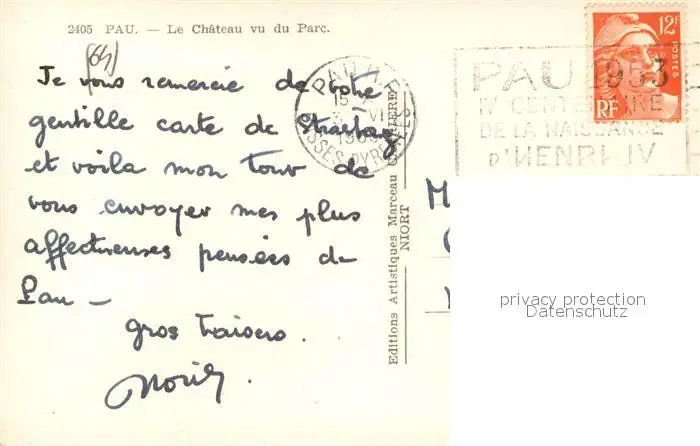 2405 PAU. — Le Château vu du Parc.
(64)
Je vous remercie de votre
gentille carte de Strasbourg
et voila mon tour de
vous envoyer mes plus
affectueuses pensées de
Pau —
gros baisers.
Editions Artistiques Marceau CARRIERE
NIORT
PAU R.P.
15
VI
BSES-PYRÉNÉES
12F
POSTES
RF
PAU 1953
IV CENTENAIRE
DE LA NAISSANCE
D'HENRI IV
M
privacy protection
Datenschutz